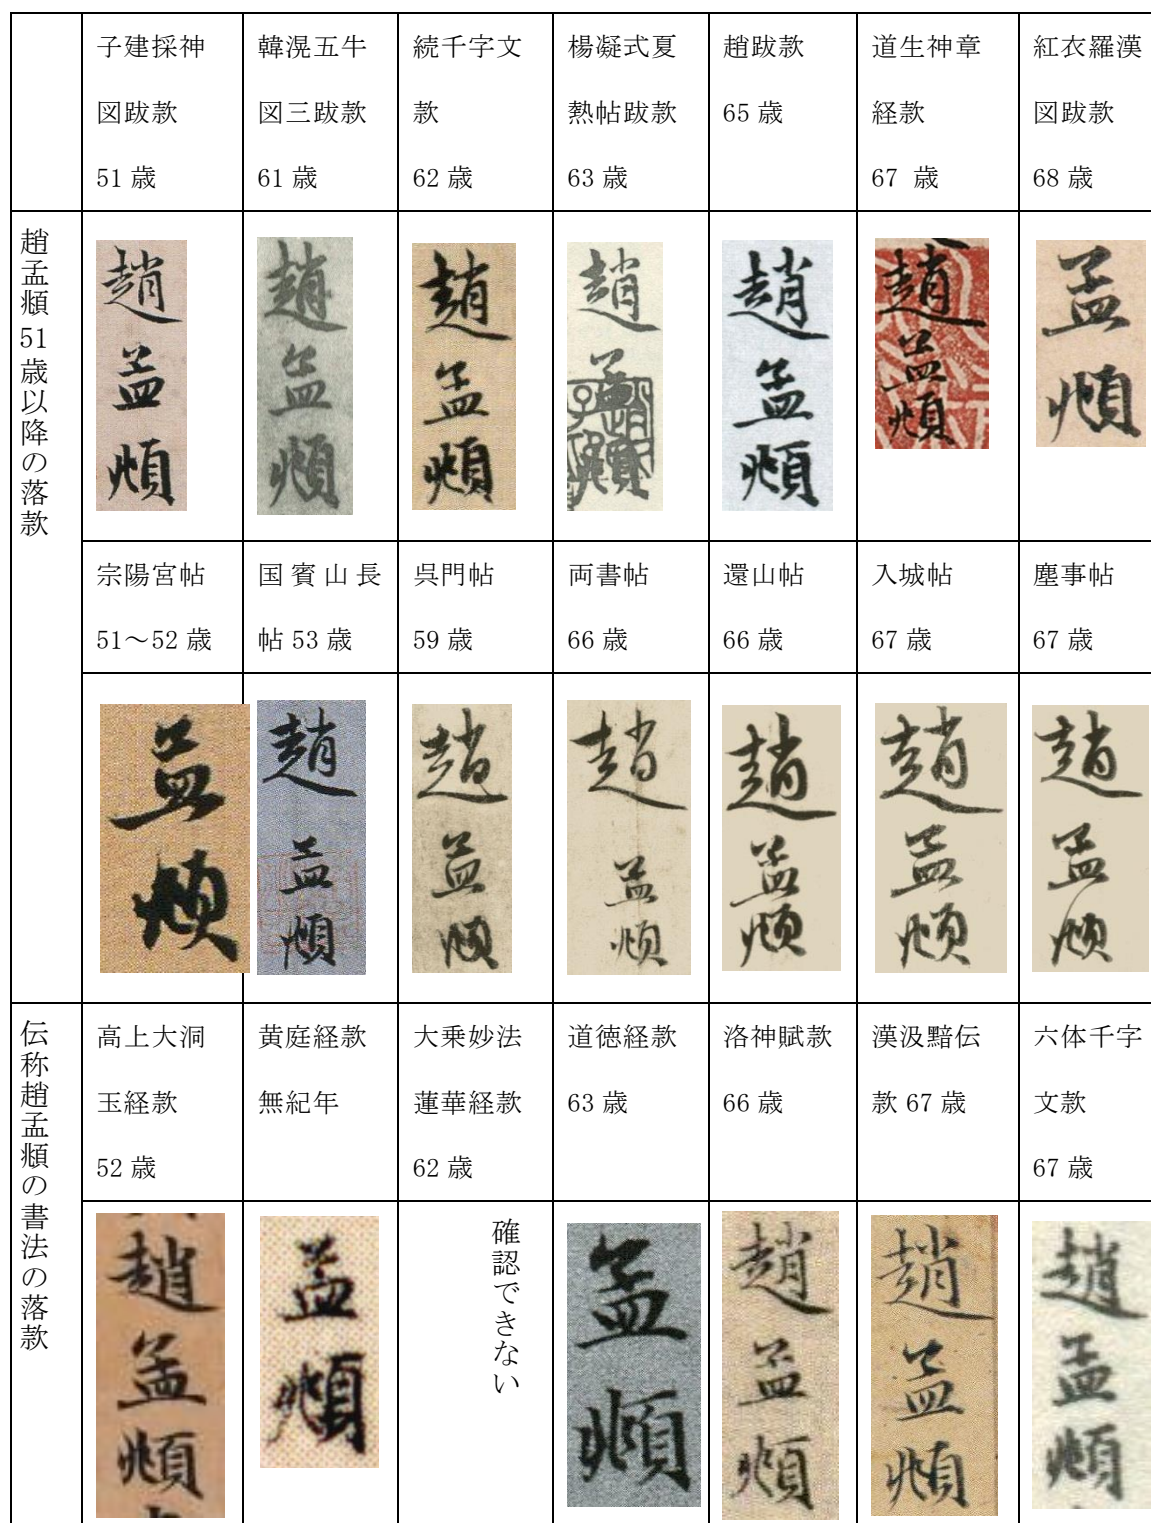 子建採神
図跋款
51歳
韓滉五牛
図三跋款
61歳
続千字文
款
62歳
楊凝式夏
熱帖跋款
63歳
趙跋款
65歳
道生神章
経款
67 歳
紅衣羅漢
図跋款
68歳
趙孟頫51歳以降の落款
趙孟頫
趙孟頫
趙孟頫
趙孟頫
趙孟頫
趙孟頫
孟頫
宗陽宮帖
51～52歳
国賓山長
帖53歳
呉門帖
59歳
両書帖
66歳
還山帖
66歳
入城帖
67歳
塵事帖
67歳
孟頫
趙孟頫
趙孟頫
趙孟頫
趙孟頫
趙孟頫
趙孟頫
伝称趙孟頫の書法の落款
高上大洞
玉経款
52歳
黄庭経款
無紀年
大乗妙法
蓮華経款
62歳
道徳経款
63歳
洛神賦款
66歳
漢汲黯伝
款67歳
六体千字
文款
67歳
趙孟頫
孟頫
確認できない
孟頫
趙孟頫
趙孟頫
趙孟頫